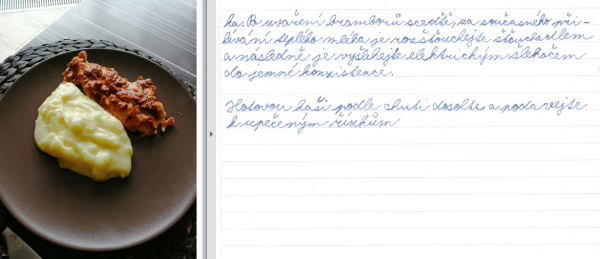 ka. Po uvaření bramborů sceďte, za současného při-
lévání teplého mléka je rozšťouchejte šťouchadlem
a následně je vyšlehejte elektrickým šlehačem
do jemné konzistence.
Hotovou kaši podle chuti dosolte a podavejte
k upečeným řízkům